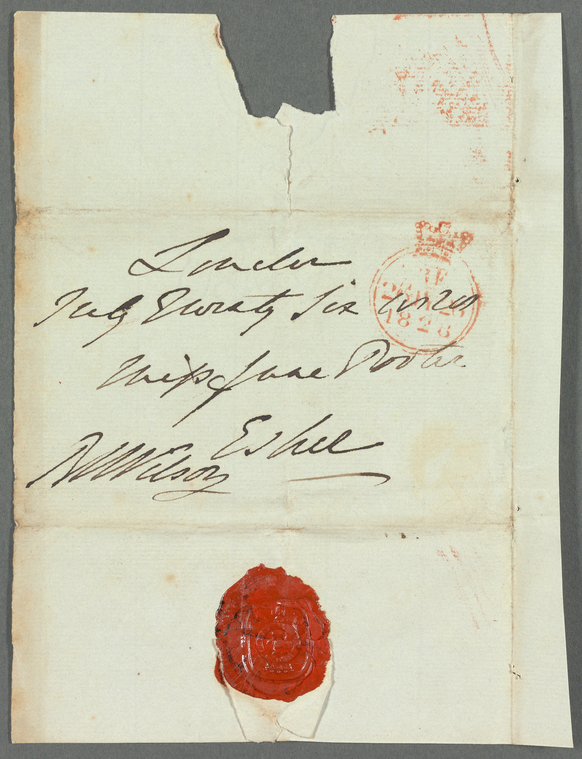 London
July Twenty Six 1828
Miss Jane Porter
Esher
RWilson
FREE
26 JY 26
1828